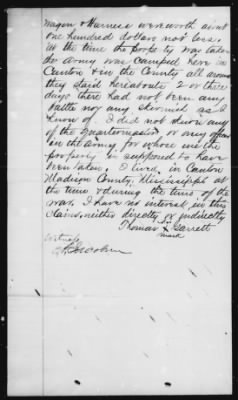 wagon & Harness were worth about
one hundred dollars not less.
at the time the property was taken
the Army was camped here in
Canton & in the County all around
they staid hereabouts 2 or three
days there had not been any
battle nor any skirmish as
I know of. I did not know any
of the quartermasters or any officers
in the Army, for whose use the
property is supposed to have
been taken. I lived in Canton
Madison County Mississippi at
the time & during the time of the
war. I have no interest in this
claim, neither directly or indirectly
his
Thomas X Garrett
mark
witness